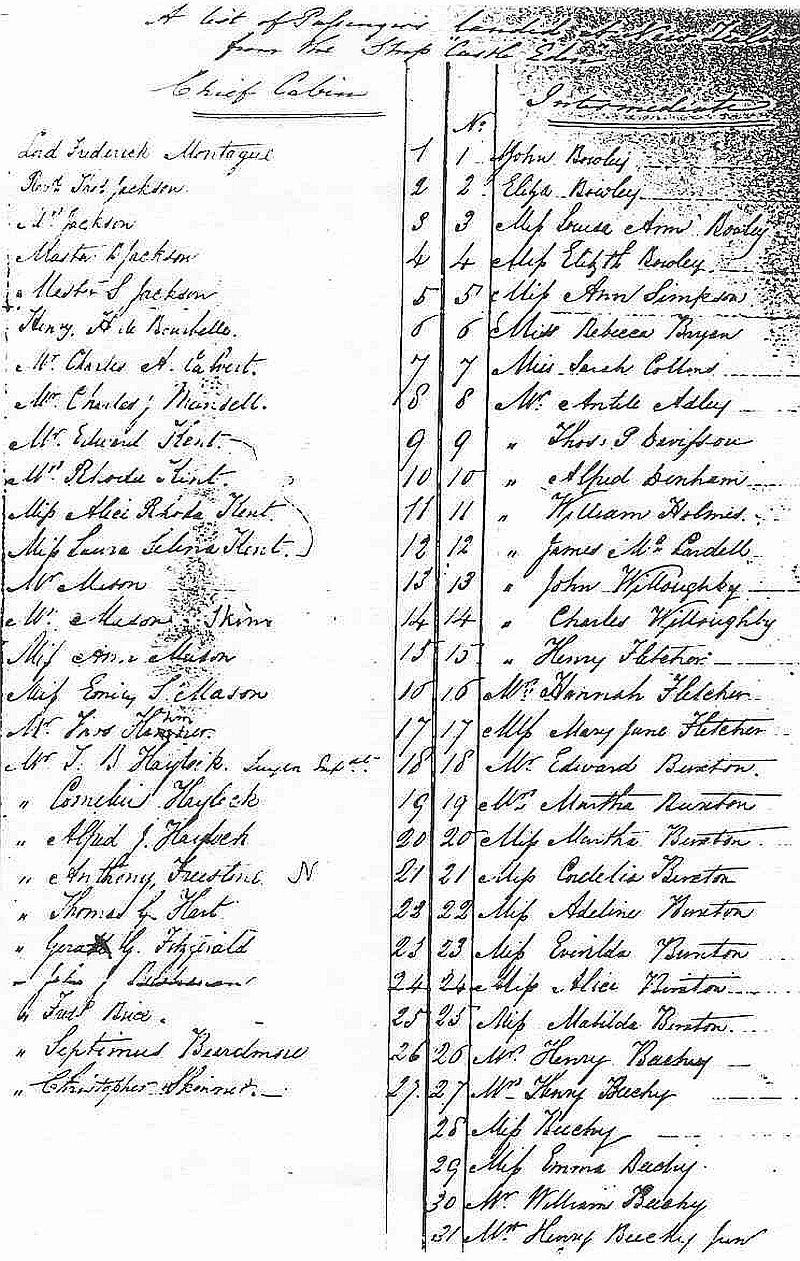 A list of Passengers landed at
from the Ship "Castle Eden"
Chief Cabin
Lord Frederick Montague 1
Revd Thos Jackson 2
Mrs Jackson 3
Master D Jackson 4
Master S Jackson 5
Henry H de Bourbelle. 6
Mr Charles A. Calvert. 7
Mr Charles J Munsell. 8
Mr. Edward Kent 9
Mrs Rhoda Kent. 10
Miss Alice Rhoda Kent 11
Miss Laura Selina Kent. 12
Mr Mason 13
Mr Mason 14
Miss Ann Mason 15
Miss Emily S. Mason 16
Mr 17
Mr T. B Haylock. 18
" Cornelius Haylock 19
" Alfred J. Haylock 20
" Anthony N 21
" Thomas G Hart 22
" Gerald G. Fitzgerald 23
24
" Fredk 25
" Septimus Beardmore 26
" Christopher Skinner. 27.
Intermediate
No.
1 John Bowley
2 Eliza Bowley
3 Miss Louisa Ann Bowley
4 Miss Elizth Bowley
5 Miss Ann Simpson
6 Miss Rebecca Bryan
7 Miss Sarah Collins
8 Mr. Adley
9 " Thos: P Davisson
10 " Alfred Denham
11 " William Holmes.
12 " James Mc Cardell
13 " John Willoughby
14 " Charles Willoughby
15 " Henry Fletcher
16 Mrs Hannah Fletcher
17 Miss Mary Jane Fletcher
18 Mr. Edward Buxton.
19 Mrs Martha Buxton
20 Miss Martha Buxton
21 Miss Cordelia Buxton
22 Miss Adeline Buxton
23 Miss Evirilda Buxton
24 Miss Alice Buxton
25 Miss Matilda Buxton.
26 Mr. Henry Beechey
27 Mrs Henry Beechy
28 Miss Beechy
29 Miss Emma Beechy
30 Mr. William Beechy
31 Mr Henry Beechy Jun